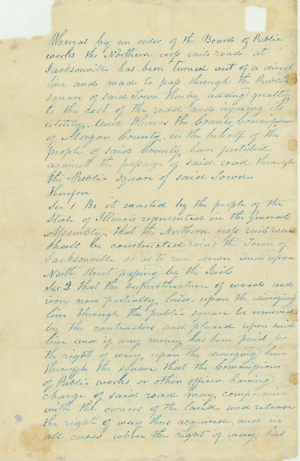 Whereas by an order of the Board of Public
works the Northern cross rail road at
Jacksonville has been turned out of a direct
line and made to pass through the Public
square of said Town thereby adding greatly
to the cost of the road, and injuring its
utility, and Whereas the County Commissioners
of Morgan County, in the behalf of the
people of said County have protested
against the passage of said road through
the Public Square of said Town
Therefore
Sec 1 Be it enacted by the people of the
State of Illinois represented in the General
Assembly, that the Northern cross rail road
shall be constructed the Town of
Jacksonville so as to run upon
North Street passing by the Jail
Sec 2 that the superstructure of wood and
iron now partially laid upon the diverging
line through the public square be removed
by the contractors and placed upon said
line and if any money has been paid for
the right of way, upon the diverging line
through the square that the Commissioners
of Public works or other officers having
charge of said road may compromise
with the owners of the land and release
the right of way thus acquired, and in
all cases where the right of way, has